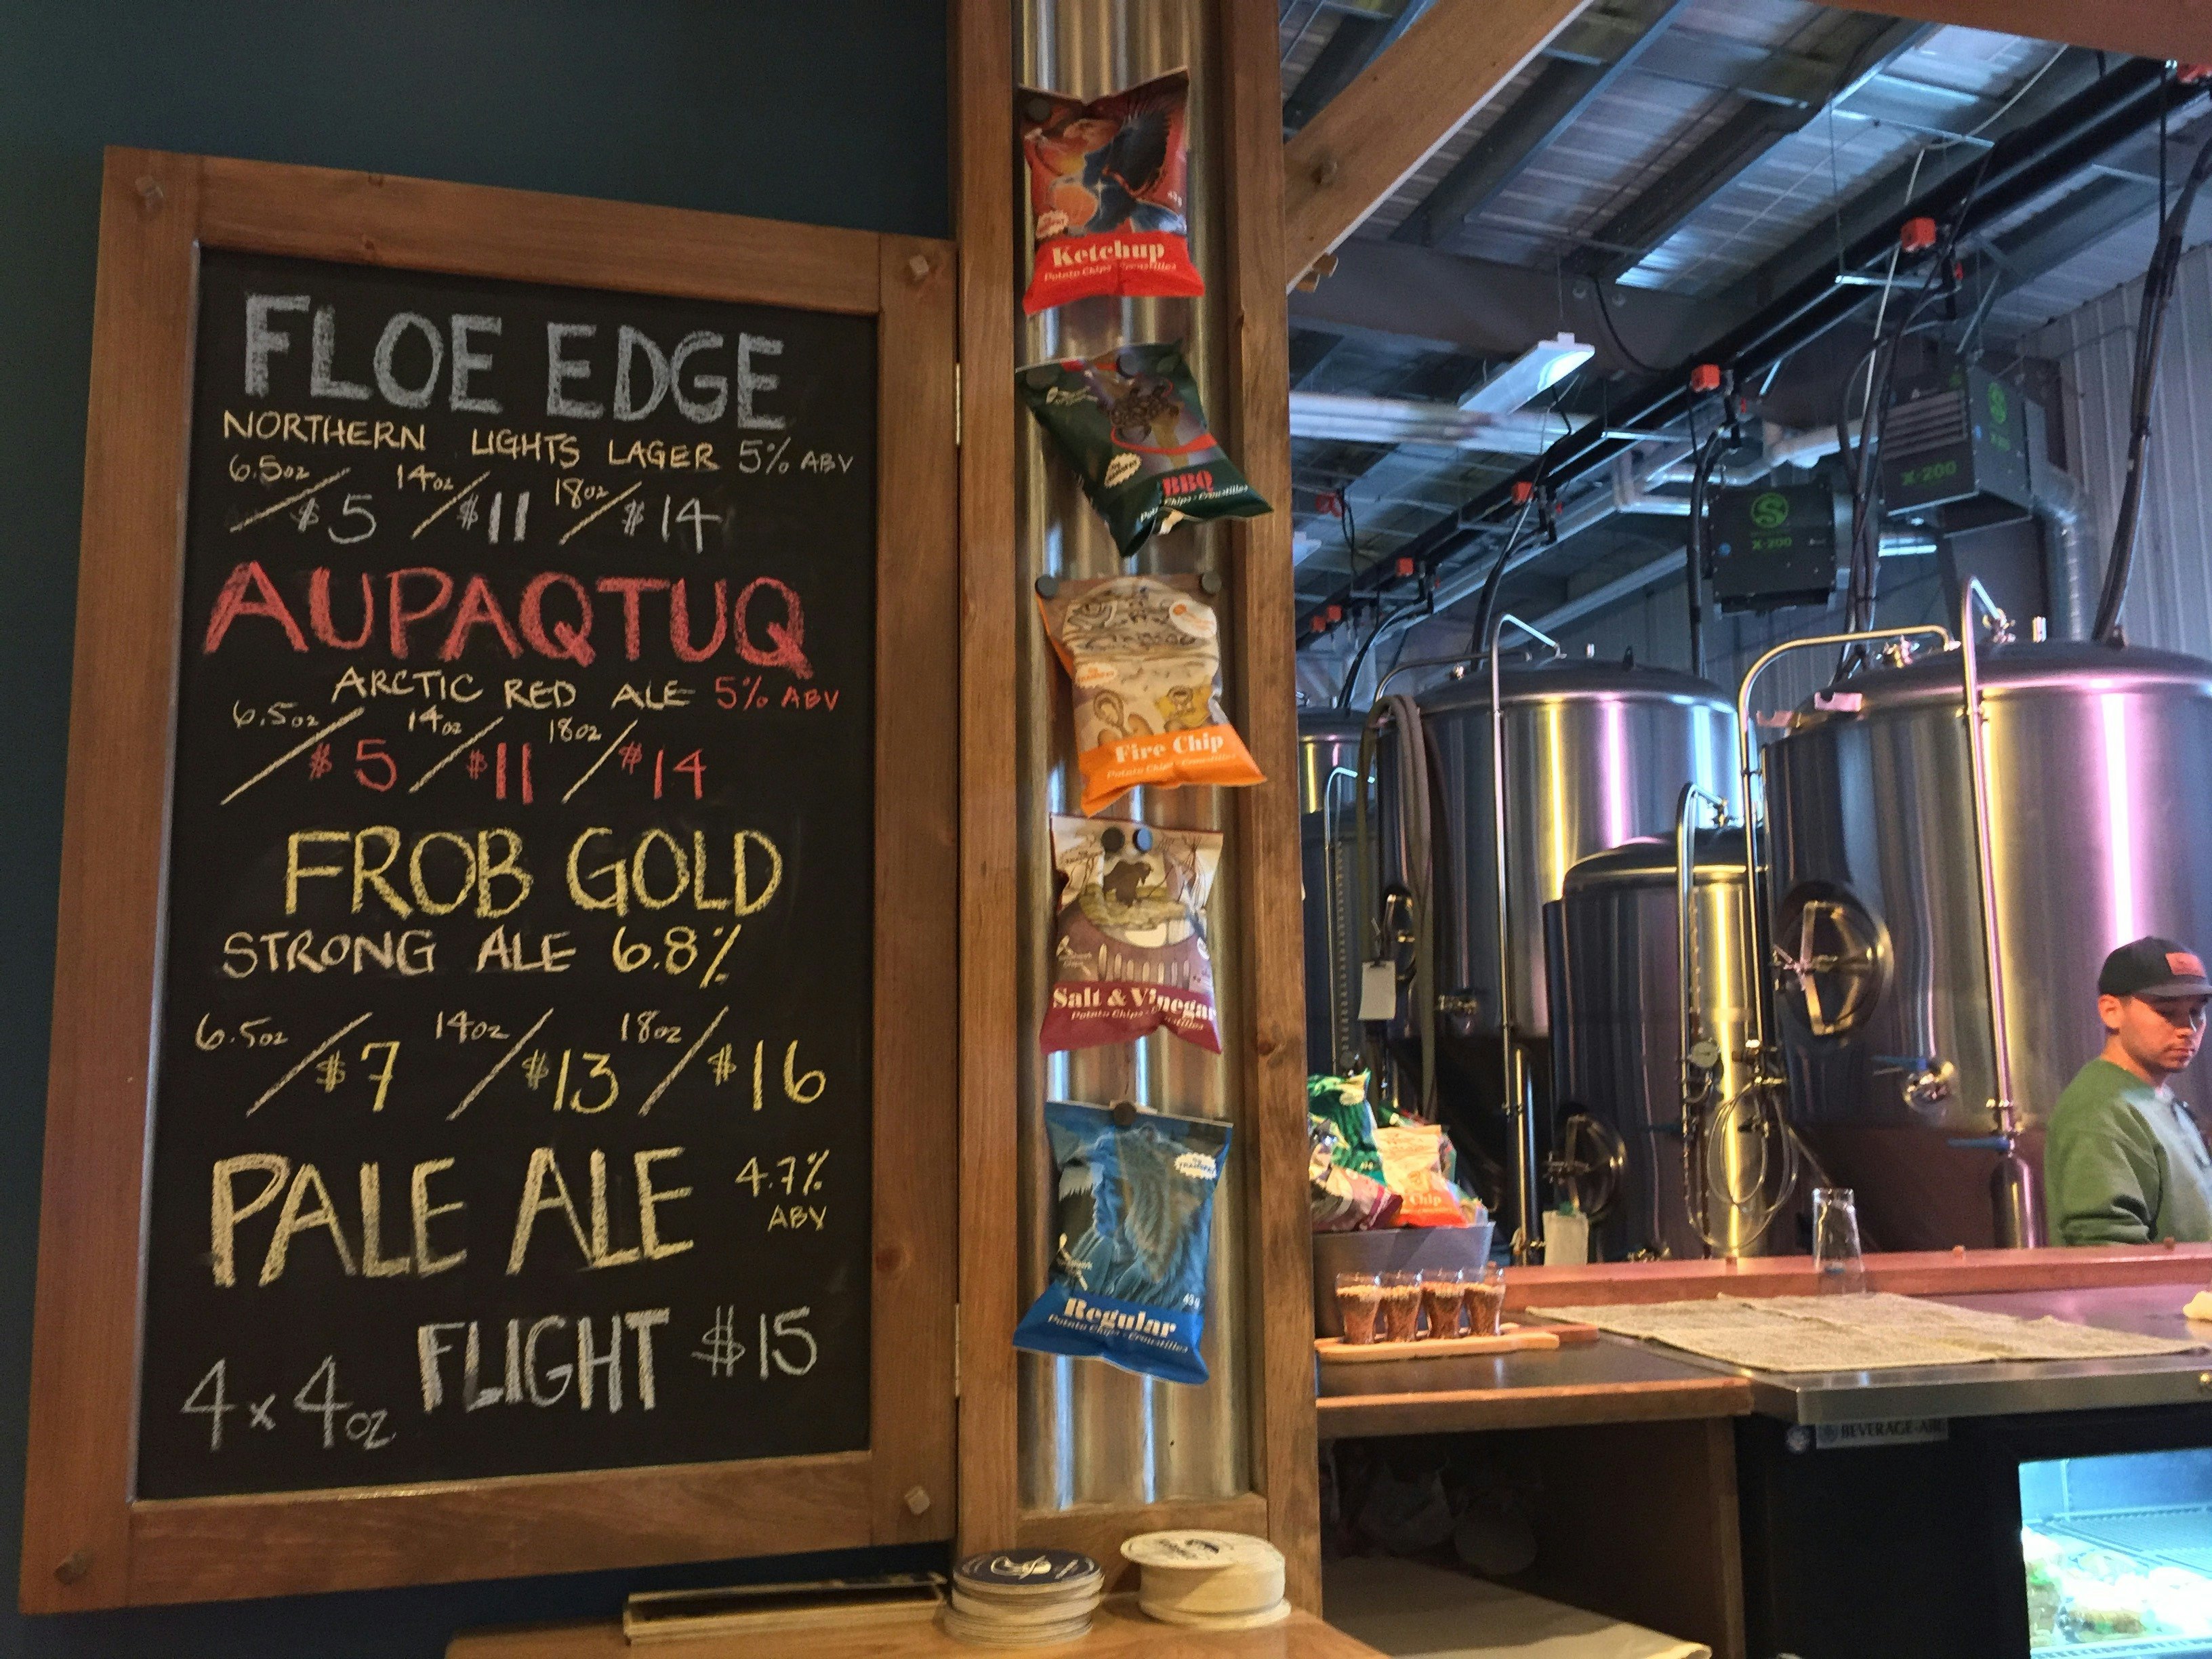 FLOE EDGE
NORTHERN LIGHTS LAGER 5% ABV
6.5oz 14oz 18oz
$5 $11 $14
AUPAQTUQ
ARCTIC RED ALE 5% ABV
6.5oz 14oz 18oz
$5 $11 $14
FROB GOLD
STRONG ALE 6.8%
6.5oz 14oz 18oz
$7 $13 $16
PALE ALE 4.7%
ABV
FLIGHT $15
4x4oz
Ketchup
Potato Chips · Croustilles
BBQ
Chips · Croustilles
Fire Chip
Potato Chips · Croustilles
Salt & Vinegar
Potato Chips · Croustilles
43g
Regular
Potato Chips · Croustilles
X-200
X-200
Chip
BEVERAGE-AIR